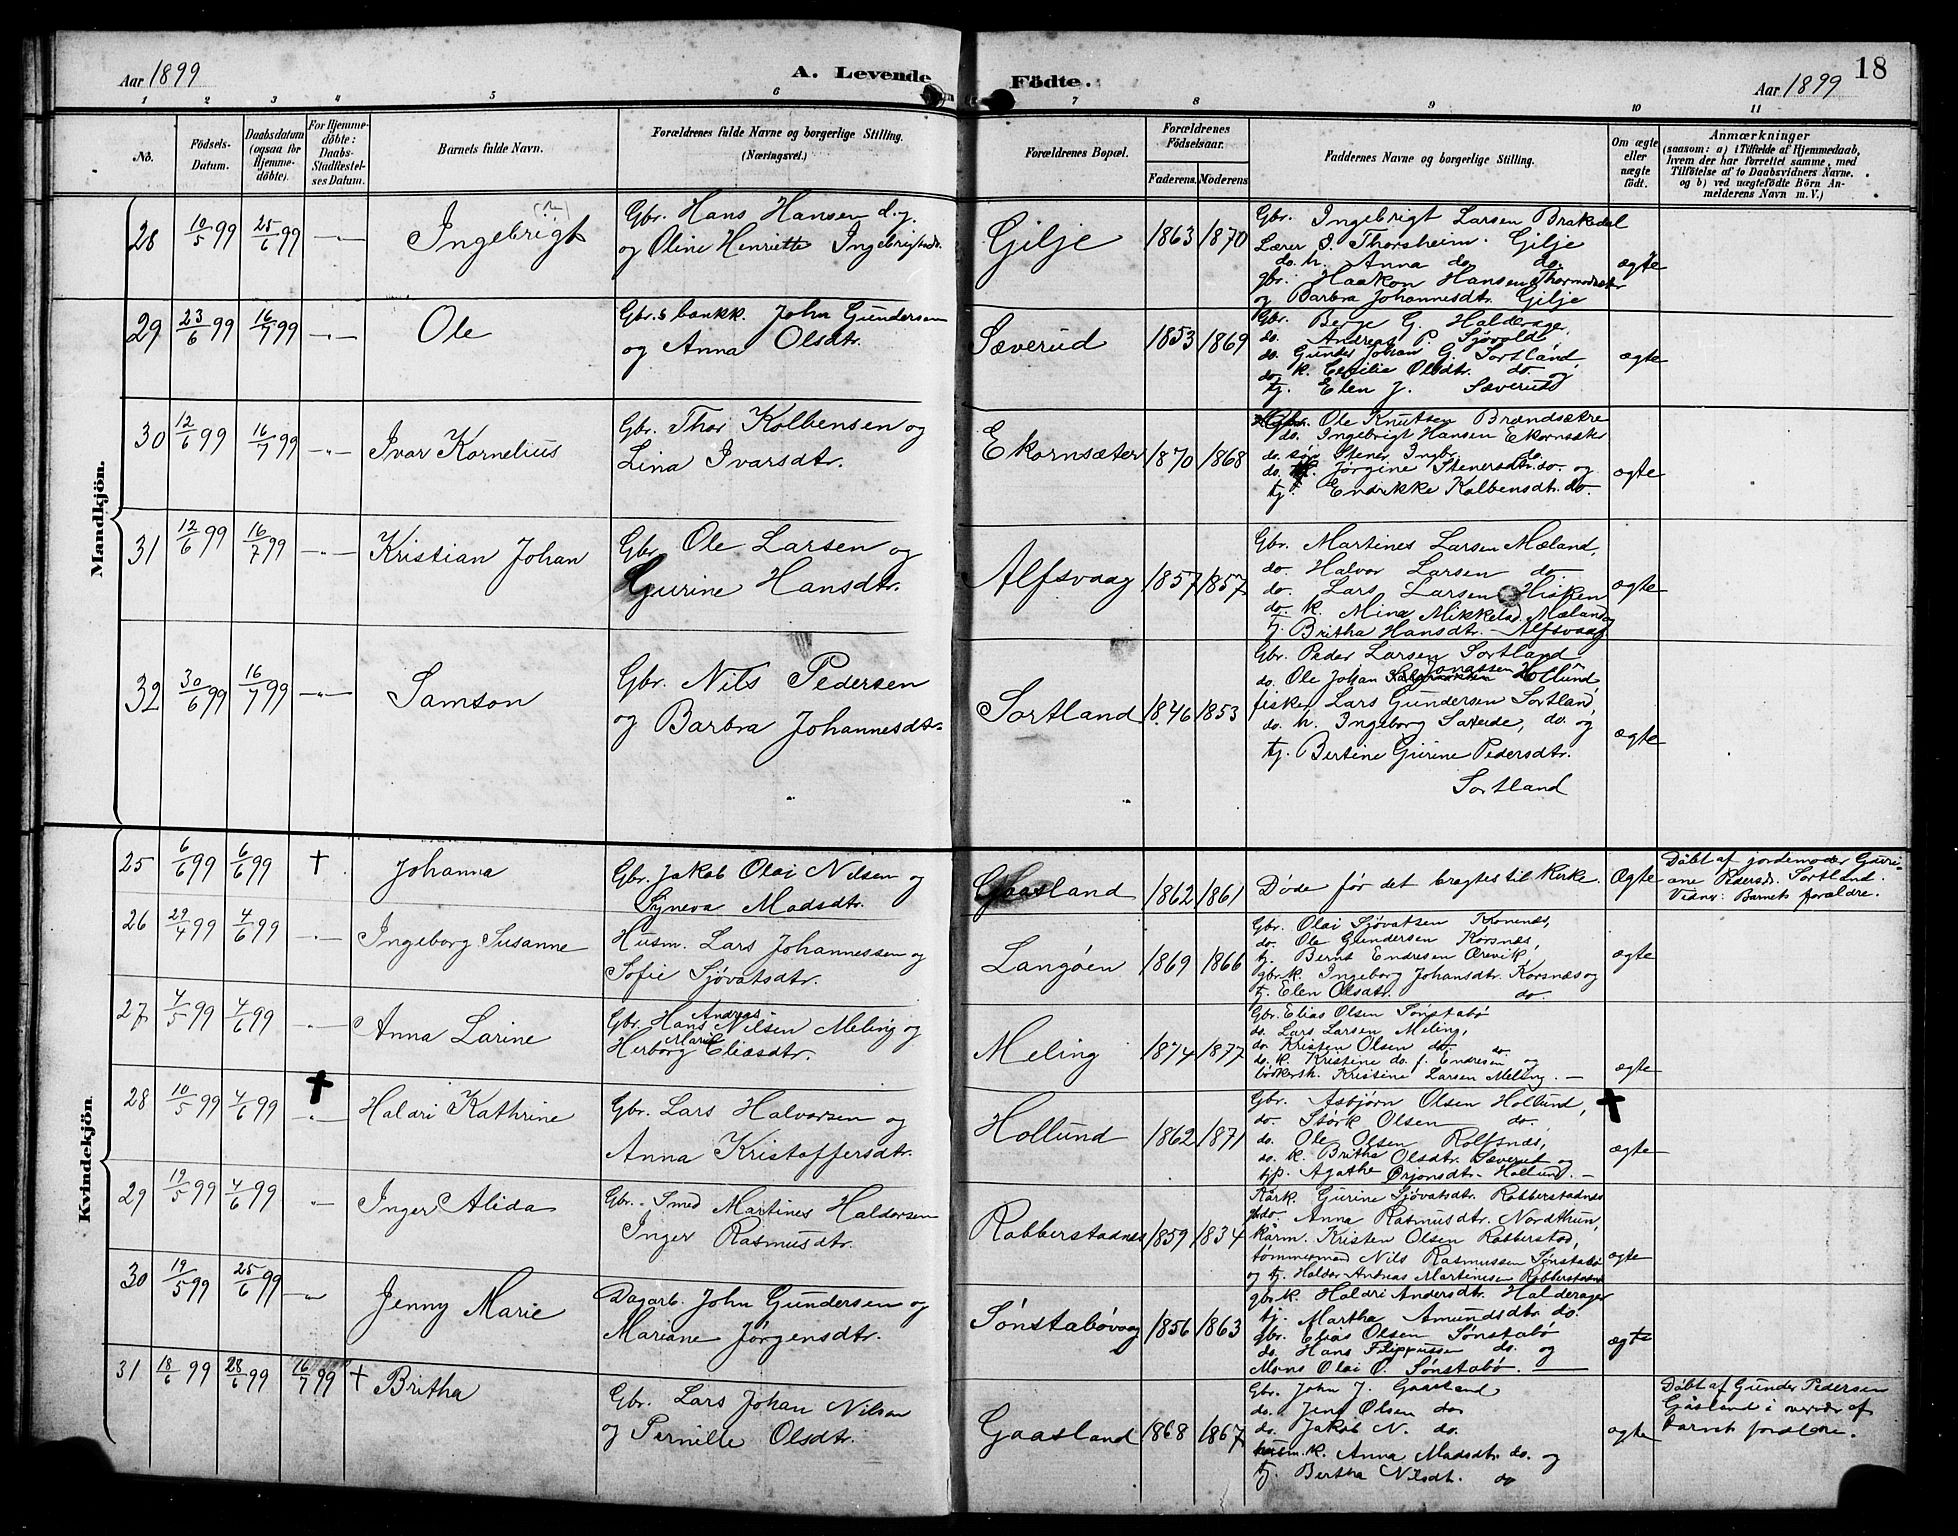 Aar 1899
A. Levende Födte.
Aar 1899
18
1 2 3 4 5 6 7 8 9 10 11
No.
Födsels-Datum.
Daabsdatum (ogsaa för Hjemme-döbte).
For Hjemme-döbte: Daabs-Stadfæstel-ses Datum.
Barnets fulde Navn.
Forældrenes fulde Navne og borgerlige Stilling. (Næringsvei.)
Forældrenes Bopæl.
Forældrenes Födselsaar.
Faderens. Moderens
Faddernes Navne og borgerlige Stilling.
Om ægte eller nægte födt.
Anmærkninger
(saasom: a) i Tilfælde af Hjemmedaab,
hvem der har forrettet samme, med
Tilföielse af to Daabsvidners Navne.
og b) ved uægtefödte Börn An-
melderens Navn m. V.)
Mandkjön.
28 10/5 99 25/6 99 -"- Ingebrigt
Gbr. Hans Hansen d.y.
og Oline Henriette Ingebrigtsdt.
Gilje 1863 1870
Gbr. Ingebrigt Larsen Brakedal
Lærer I. Thorsheim. Gilje
do. h. Anna do. do.
gbr. Haakon Hansen Thormodsæter
og Barbra Johannesdtr. Gilje
ægte
29 23/6 99 16/7 99 -"- Ole
Gbr. & bankk. John Gundersen
og Anna Olsdtr.
Sæverud 1853 1869
Gbr. Berje G. Halderager,
do. Andreas P. Sjøvold,
do. Gunder Johan G. Sortland,
do. k. Cecilie Olsdtr. do. og
tj. Elen J. Sæverud
ægte
30 12/6 99 16/7 99 -"- Ivar Kornelius
Gbr. Thor Kolbensen og
Lina Ivarsdtr.
Ekornsæter 1870 1868
Gbr. Ole Knutsen Brændsætre
do. Ingebrigt Hansen Ekornsæter
do. søn Stener Ingbr. do.
do. k. Jørgine Stenersdtr. do. og
tj. Endrikke Kolbensdtr. do.
ægte
31 12/6 99 16/7 99 -"- Kristian Johan
Gbr. Ole Larsen og
Gurine Hansdtr.
Alfsvaag 1857 1857
Gbr. Martines Larsen Mæland,
do Halvor Larsen do.
do. Lars Larsen Hisken
do. k. Mina Mikkelsd. Mæland og
tj. Britha Hansdtr. - Alfsvaag
ægte
32 30/6 99 16/7 99 -"- Samson
Gbr. Nils Pedersen
og Barbra Johannesdtr.
Sortland 1846 1853
Gbr. Peder Larsen Sortland
do. Ole Johan Jonassen Hollund,
fisker Lars Gundersen Sortland,
do. h. Ingeborg Saxeide, do. og
tj. Bertine Gurine Pedersdtr.
Sortland
ægte
Kvindekjön.
25 6/6 99 6/6 99 † Johanna
Gbr. Jakob Olai Nilsen og
Syneva Madsdtr.
Gaasland 1862 1861
Døde før det bragtes til Kirke.
Ægte
Døbt af jordemoder Guri-
ane Pedersd. Sortland.
Vidner: Barnets forældre.
26 29/4 99 4/6 99 -"- Ingeborg Susanne
Husm. Lars Johannessen og
Sofie Sjøvatsdtr.
Langøen 1869 1866
Gbr. Olai Sjøvatsen Korsnæs,
do. Ole Gundersen Korsnæs,
tj. Bernt Endresen Ørevik,
gbr. k. Ingeborg Johansdtr. Korsnæs og
tj. Elen Olsdtr. do.
ægte
27 4/5 99 4/6 99 -"- Anna Larine
Gbr. Hans Andreas Nilsen Meling og
Herborg Marie Eliasdtr.
Meling 1874 1877
Gbr. Elias Olsen Sønstabø
do. Lars Larsen Meling,
do. Kristen Olsen do
do. k. Kristine do. f. Endresen do. og
bødkersh. Kristine Larsen Meling. -
ægte
28 10/5 99 4/6 99 † -"- Haldri Kathrine
Gbr. Lars Halvorsen og
Anna Kristoffersdtr.
Hollund 1862 1871
Gbr. Asbjørn Olsen Hollund,
do. Størk Olsen do.
do. Ole Olsen Rolfsnæs,
do. k. Britha Olsdtr. Sæverud og
tjp. Agathe Ørjansdtr. Hollund. -
† ægte
29 19/5 99 4/6 99 -"- Inger Alida
Gbr. - Smed Martines Haldorsen
Inger Rasmusdtr.
Robberstadnes 1859 1834
Kark. Gurine Sjøvatsdtr. Robberstadnes
do. Anna Rasmusdtr. Nordthun,
kårm. Kristen Olsen Robberstad,
tømmermad Nils Rasmussen Sønstabø
og tj. Haldor Andreas Martinesen Robberstadnes
ægte
30 19/5 99 25/6 99 -"- Jenny Marie
Dagarb. John Gundersen og
Mariane Jørgensdtr.
Sønstabøvaag 1856 1863
gbr. k. Haldri Andersdtr. Halderager
tj. Martha Amundsdtr. do.
gbr. Elias Olsen Sønstabø
do. Hans Filippussen do. og
Mons Olai O. Sønstabø.
ægte
31 18/6 99 28/6 99 16/7 99 † Britha
Gbr. Lars Johan Nilsen
og Pernille Olsdtr.
Gaasland 1868 1867
Gbr. John J. Gaasland
do. Jens Olsen do
do. Jakob N. do.
k. Anna Madsdtr. do. og
tj. Bertha Nilsdt. do
ægte
Døbt af Gunder Pedersen
Gåsland i overvær af
barnets forældre.